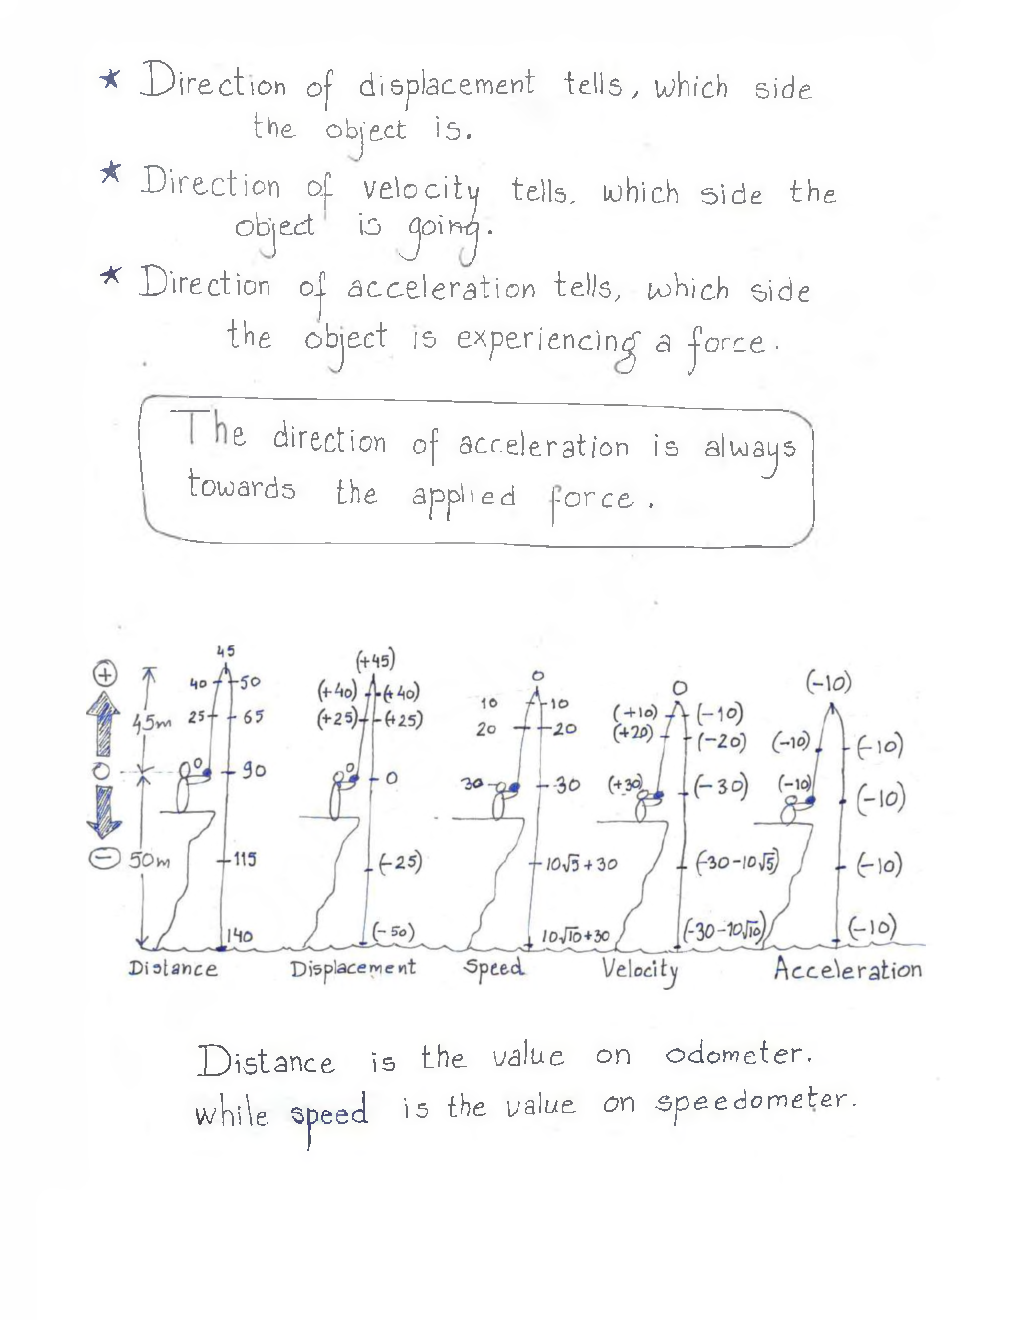 ★ Direction of displacement tells, which side
the object is.
★ Direction of velocity tells, which side the
object is going.
★ Direction of acceleration tells, which side
the object is experiencing a force.
The direction of acceleration is always
towards the applied force.
+
45m
0
50m
−
45
40 50
25 65
90
115
140
Distance
(+45)
(+40) (+40)
(+25) (+25)
0
(-25)
(-50)
Displacement
0
10 10
20 20
30 30
10√5+30
10√10+30
Speed
0
(+10) (-10)
(+20) (-20)
(+30) (-30)
(-30-10√5)
(-30-10√10)
Velocity
(-10)
(-10) (-10)
(-10) (-10)
(-10)
(-10)
Acceleration
Distance is the value on odometer.
while speed is the value on speedometer.